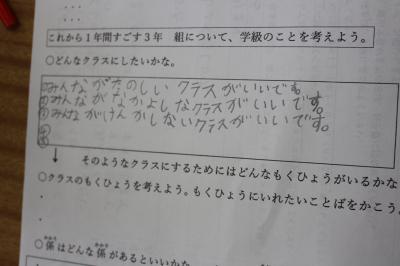 ・・・
これから１年間すごす３年　組について、学級のことを考えよう。
○どんなクラスにしたいかな。
①みんながたのしいクラスがいいです。
②みんながなかよしなクラスがいいです。
③みんながけんかしないクラスがいいです。
④
⑤
↓　そのようなクラスにするためにはどんなもくひょうがいるかな
○クラスのもくひょうを考えよう。もくひょうにいれたいことばをかこう。
・
・
○係はどんな係があるといいかな